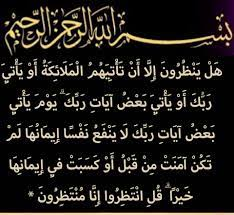 بسم الله الرحمن الرحيم
هَلْ يَنْظُرُونَ إِلَّا أَنْ تَأْتِيَهُمُ الْمَلَائِكَةُ أَوْ يَأْتِيَ
رَبُّكَ أَوْ يَأْتِيَ بَعْضُ آيَاتِ رَبِّكَ ۗ يَوْمَ يَأْتِي
بَعْضُ آيَاتِ رَبِّكَ لَا يَنْفَعُ نَفْسًا إِيمَانُهَا لَمْ
تَكُنْ آمَنَتْ مِنْ قَبْلُ أَوْ كَسَبَتْ فِي إِيمَانِهَا
خَيْرًا ۗ قُلِ انْتَظِرُوا إِنَّا مُنْتَظِرُونَ *